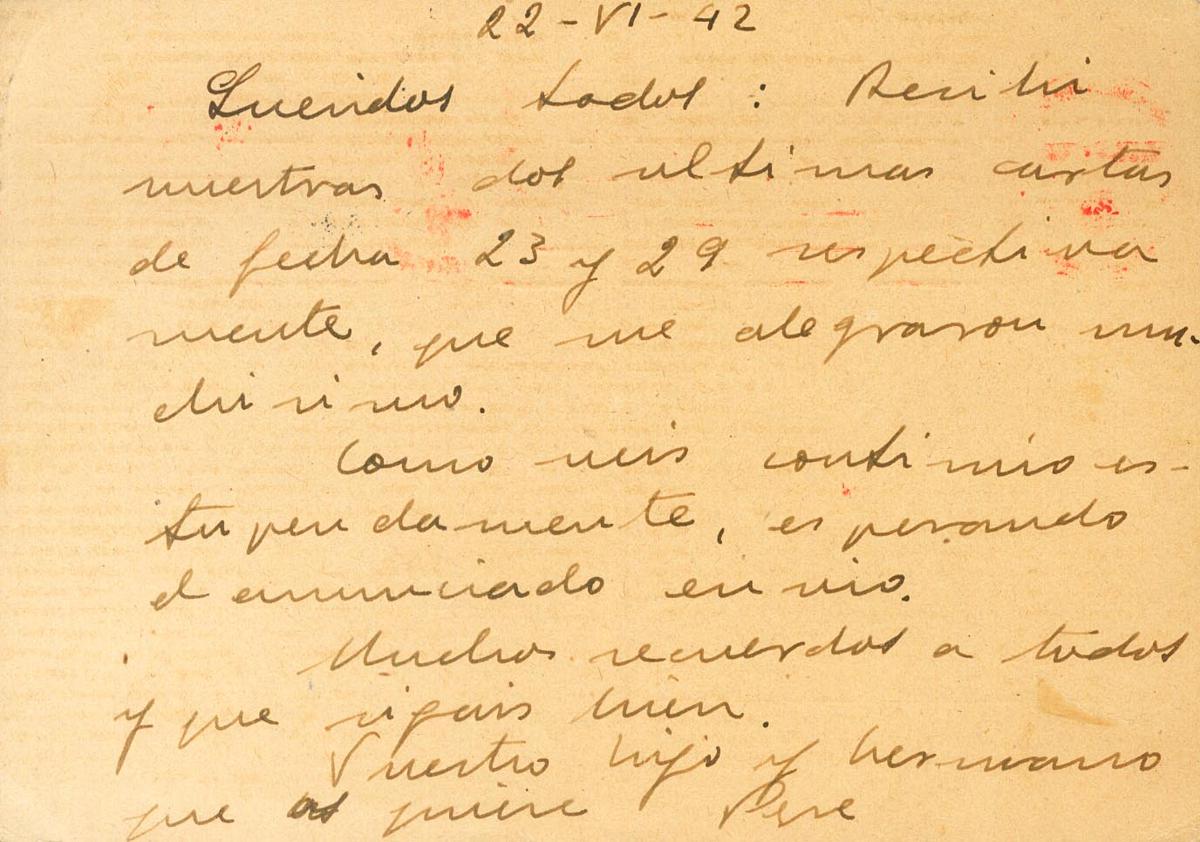 22-VI-42
Queridos todos: Recibi
vuestras dos ultimas cartas
de fecha 23 y 29 respectiva
mente, que me alegraron mu-
chisimo.
Como veis continúo es-
tupendamente, esperando
el anunciado envio.
Muchos recuerdos a todos
y que sigais bien.
Vuestro hijo y hermano
que os quiere Pepe